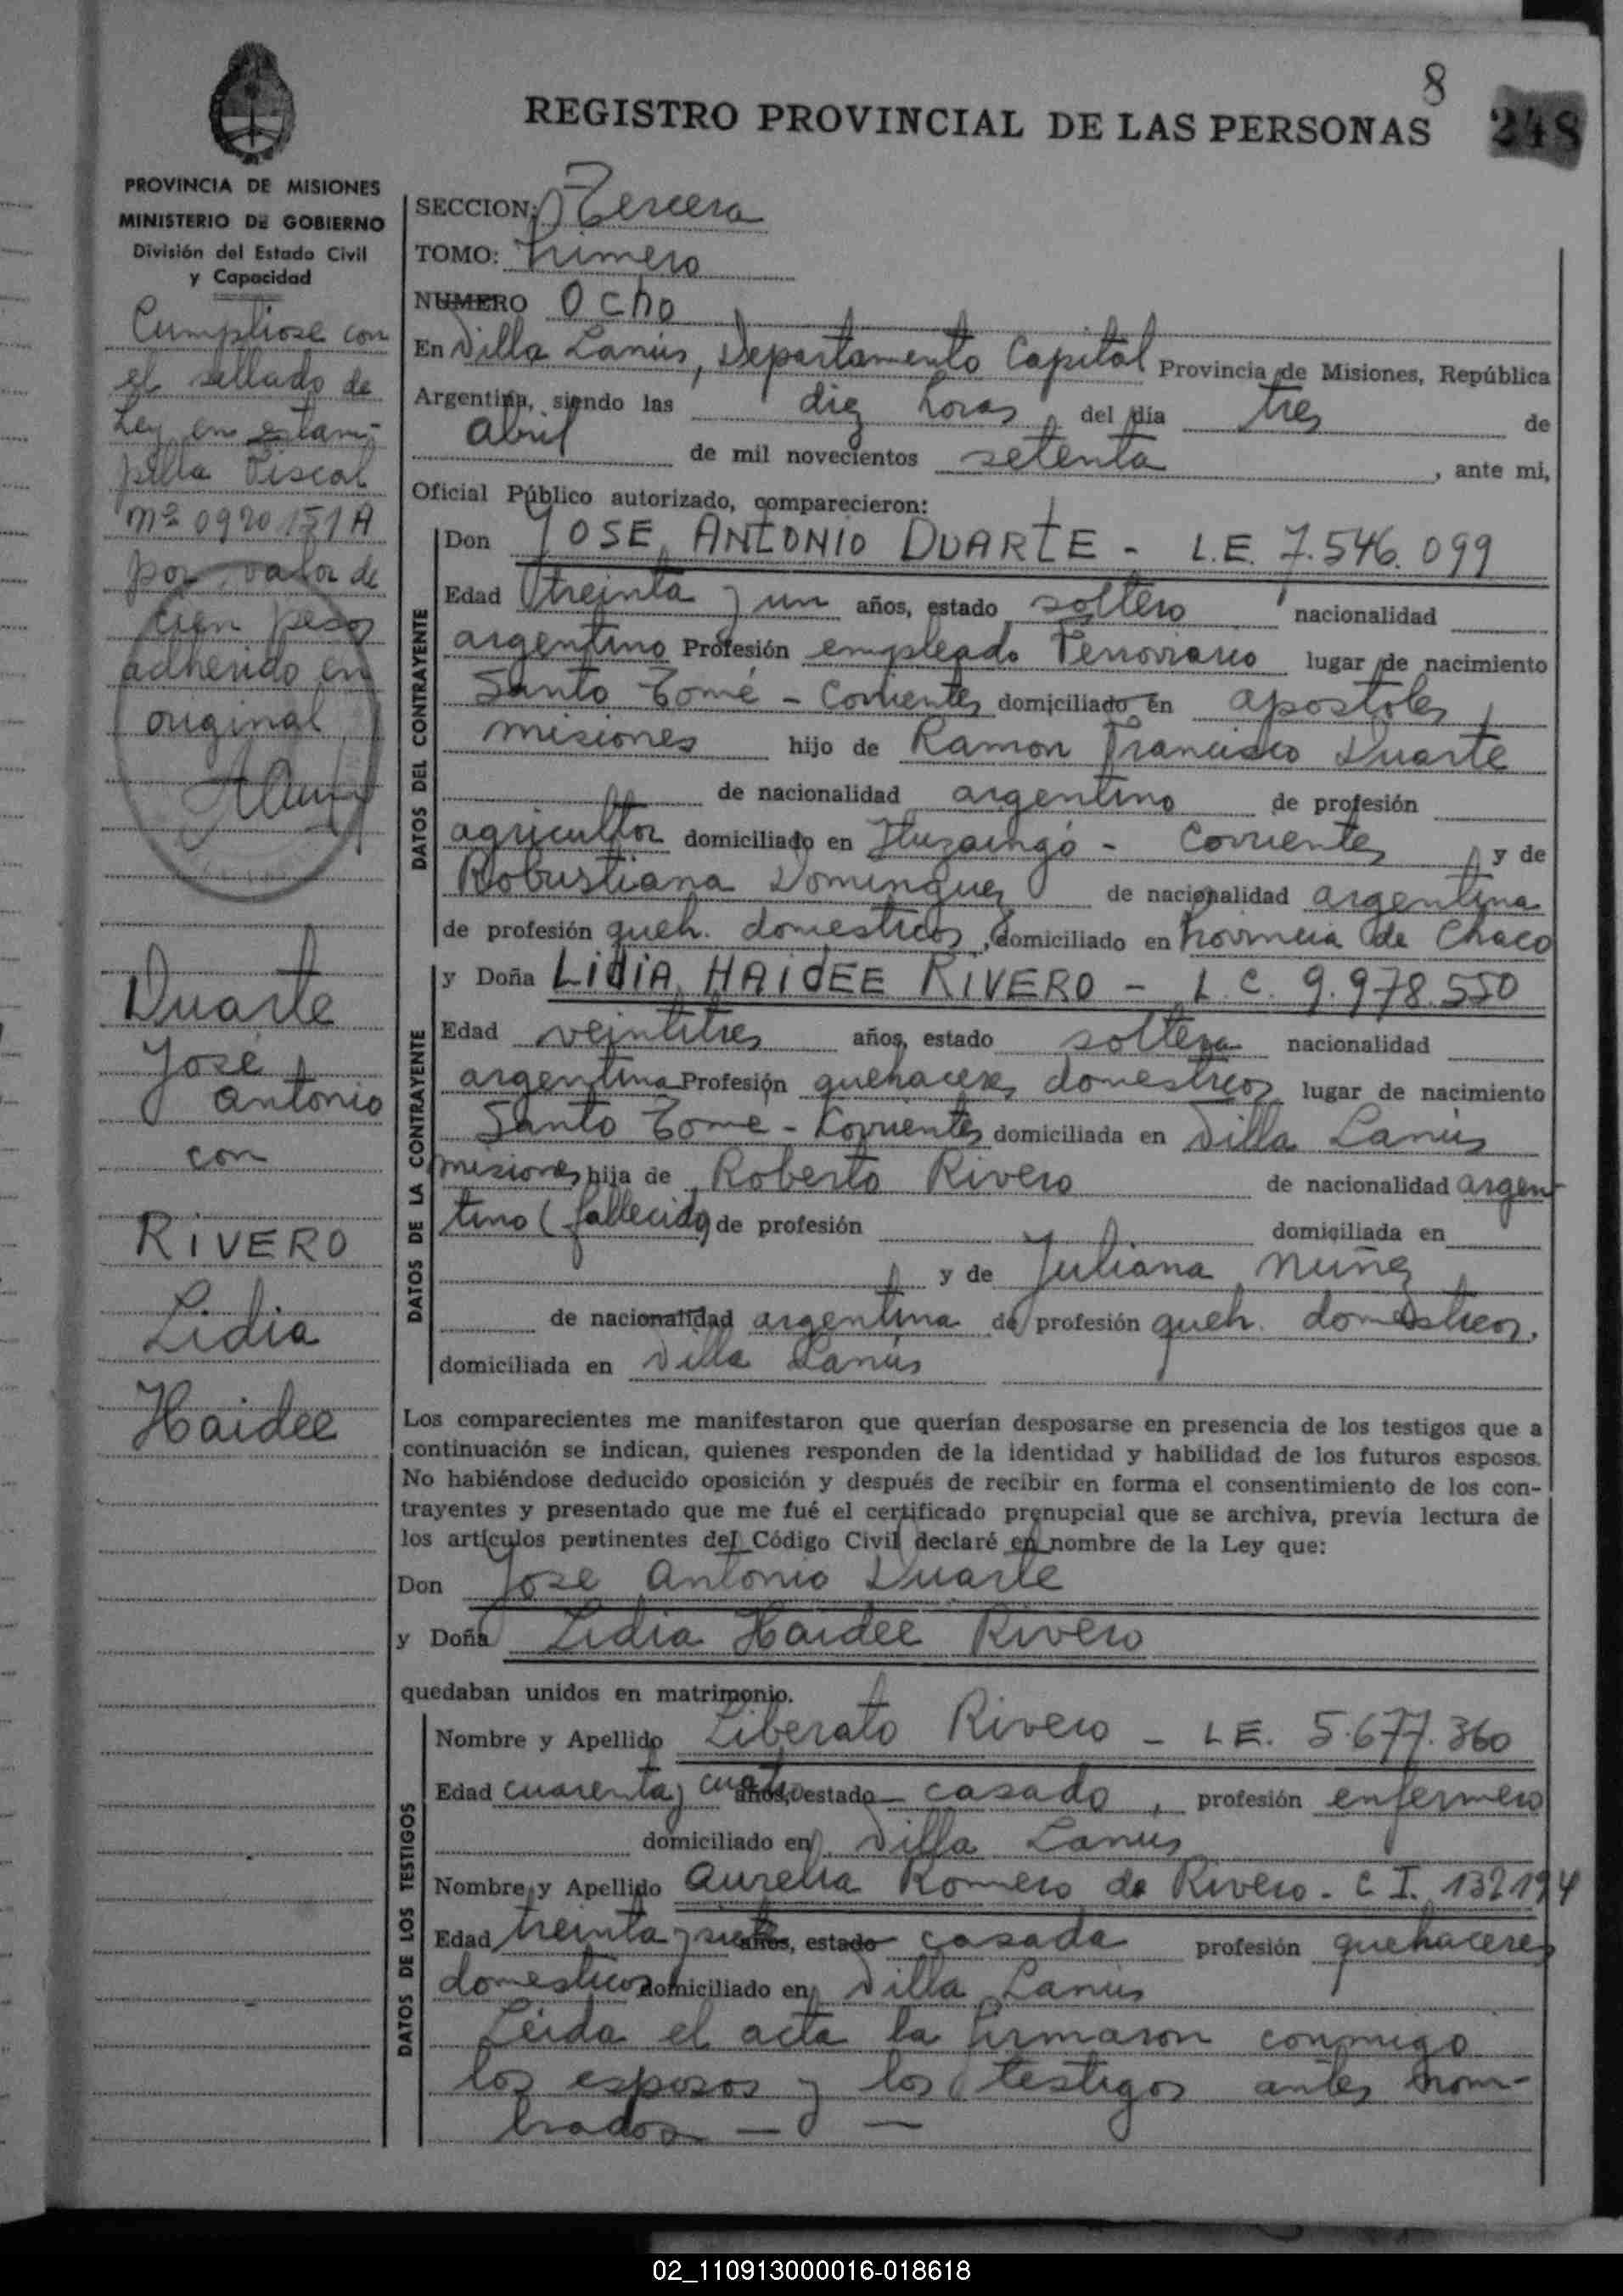 8
REGISTRO PROVINCIAL DE LAS PERSONAS 248
PROVINCIA DE MISIONES
MINISTERIO DE GOBIERNO
División del Estado Civil
y Capacidad
Cumpliose con
el sellado de
Ley en estam-
pilla Fiscal
nº 0920151 A
por valor de
cien pesos
adherido en
original
Duarte
José
Antonio
con
RIVERO
Lidia
Haidee
SECCION: Tercera
TOMO: Primero
NUMERO Ocho
En Villa Lanús, Departamento Capital Provincia de Misiones, República
Argentina, siendo las diez horas del día tres de
abril de mil novecientos setenta, ante mi,
Oficial Público autorizado, comparecieron:
DATOS DEL CONTRAYENTE
Don JOSE ANTONIO DUARTE - L.E. 7.546.099
Edad treinta y un años, estado soltero nacionalidad
argentino Profesión empleado Ferroviario lugar de nacimiento
Santo Tomé - Corrientes domiciliado en Apostoles
misiones hijo de Ramon Francisco Duarte
de nacionalidad argentino de profesión
agricultor domiciliado en Ituzaingó - Corrientes y de
Robustiana Dominguez de nacionalidad argentina
de profesión queh. domesticos, domiciliado en Provincia de Chaco
DATOS DE LA CONTRAYENTE
y Doña LIDIA HAIDEE RIVERO - L.C. 9.978.550
Edad veintitres años, estado soltera nacionalidad
argentina Profesión quehaceres domesticos lugar de nacimiento
Santo Tome - Corrientes domiciliada en Villa Lanús
misiones hija de Roberto Rivero de nacionalidad argen-
tino (fallecido) de profesión domiciliada en
y de Juliana Nuñez
de nacionalidad argentina de profesión queh. domesticos,
domiciliada en Villa Lanús
Los comparecientes me manifestaron que querían desposarse en presencia de los testigos que a
continuación se indican, quienes responden de la identidad y habilidad de los futuros esposos.
No habiéndose deducido oposición y después de recibir en forma el consentimiento de los con-
trayentes y presentado que me fué el certificado prenupcial que se archiva, previa lectura de
los artículos pertinentes del Código Civil declaré en nombre de la Ley que:
Don Jose Antonio Duarte
y Doña Lidia Haidee Rivero
quedaban unidos en matrimonio.
DATOS DE LOS TESTIGOS
Nombre y Apellido Liberato Rivero - L.E. 5.677.360
Edad cuarenta y cuatro años, estado casado, profesión enfermero
domiciliado en Villa Lanus
Nombre y Apellido Aurelia Romero de Rivero - C.I. 132194
Edad treinta y siete años, estado casada profesión quehaceres
domesticos domiciliado en Villa Lanús
Leida el acta la firmaron conmigo
los esposos y los testigos antes nom-
brados — —
02_110913000016-018618